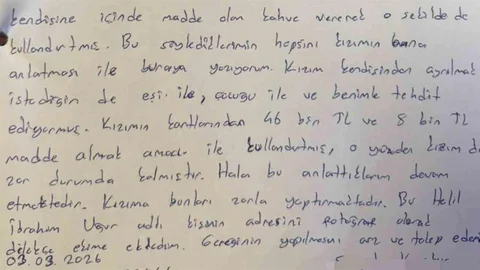 kendisine içinde madde olan kahve vererek o şekilde de
kullandırtmış. Bu söylediklerimin hepsini kızımın bana
anlatması ile buraya yazıyorum. Kızım kendisinden ayrılmak
istediğin de eşi ile, çocuğu ile ve benimle tehdit
ediyormuş. Kızımın kartlarından 46 bin TL ve 8 bin TL
madde almak amacı ile kullandırtmış, o yüzden kızım da
zor durumda kalmıştır. Hala bu anlattıklarım devam
etmektedir. Kızıma bunları zorla yaptırmaktadır. Bu Helil
İbrahim Uğur adlı kişinin adresini fotoğraf olarak
dilekçe ekime ekledim. Gereğinin yapılmasını arz ve talep ederim
03.03.2026